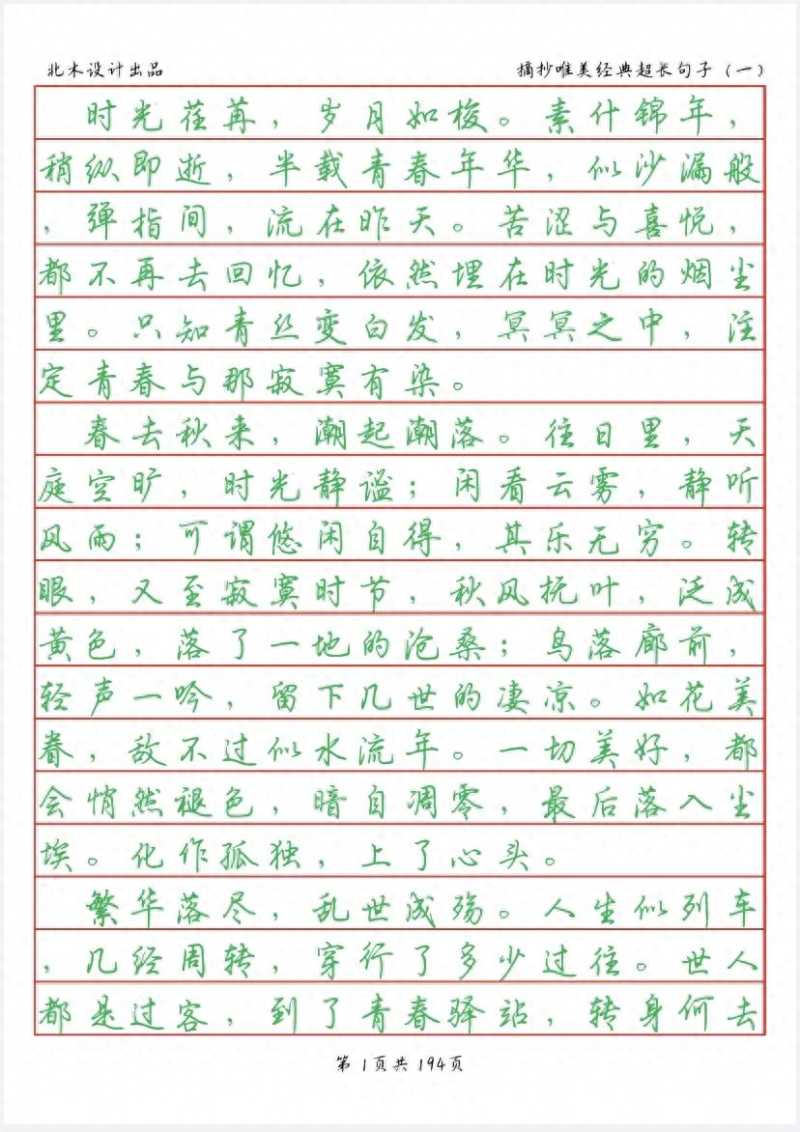 北木设计出品
摘抄唯美经典超长句子（一）
时光荏苒，岁月如梭。素什锦年，
稍纵即逝，半载青春年华，似沙漏般
，弹指间，流在昨天。苦涩与喜悦，
都不再去回忆，依然埋在时光的烟尘
里。只知青丝变白发，冥冥之中，注
定青春与那寂寞有染。
春去秋来，潮起潮落。往日里，天
庭空旷，时光静谧；闲看云雾，静听
风雨；可谓悠闲自得，其乐无穷。转
眼，又至寂寞时节，秋风抚叶，泛成
黄色，落了一地的沧桑；鸟落廊前，
轻声一吟，留下几世的凄凉。如花美
眷，敌不过似水流年。一切美好，都
会悄然褪色，暗自凋零，最后落入尘
埃。化作孤独，上了心头。
繁华落尽，乱世成殇。人生似列车
，几经周转，穿行了多少过往。世人
都是过客，到了青春驿站，转身何去
第1页共194页